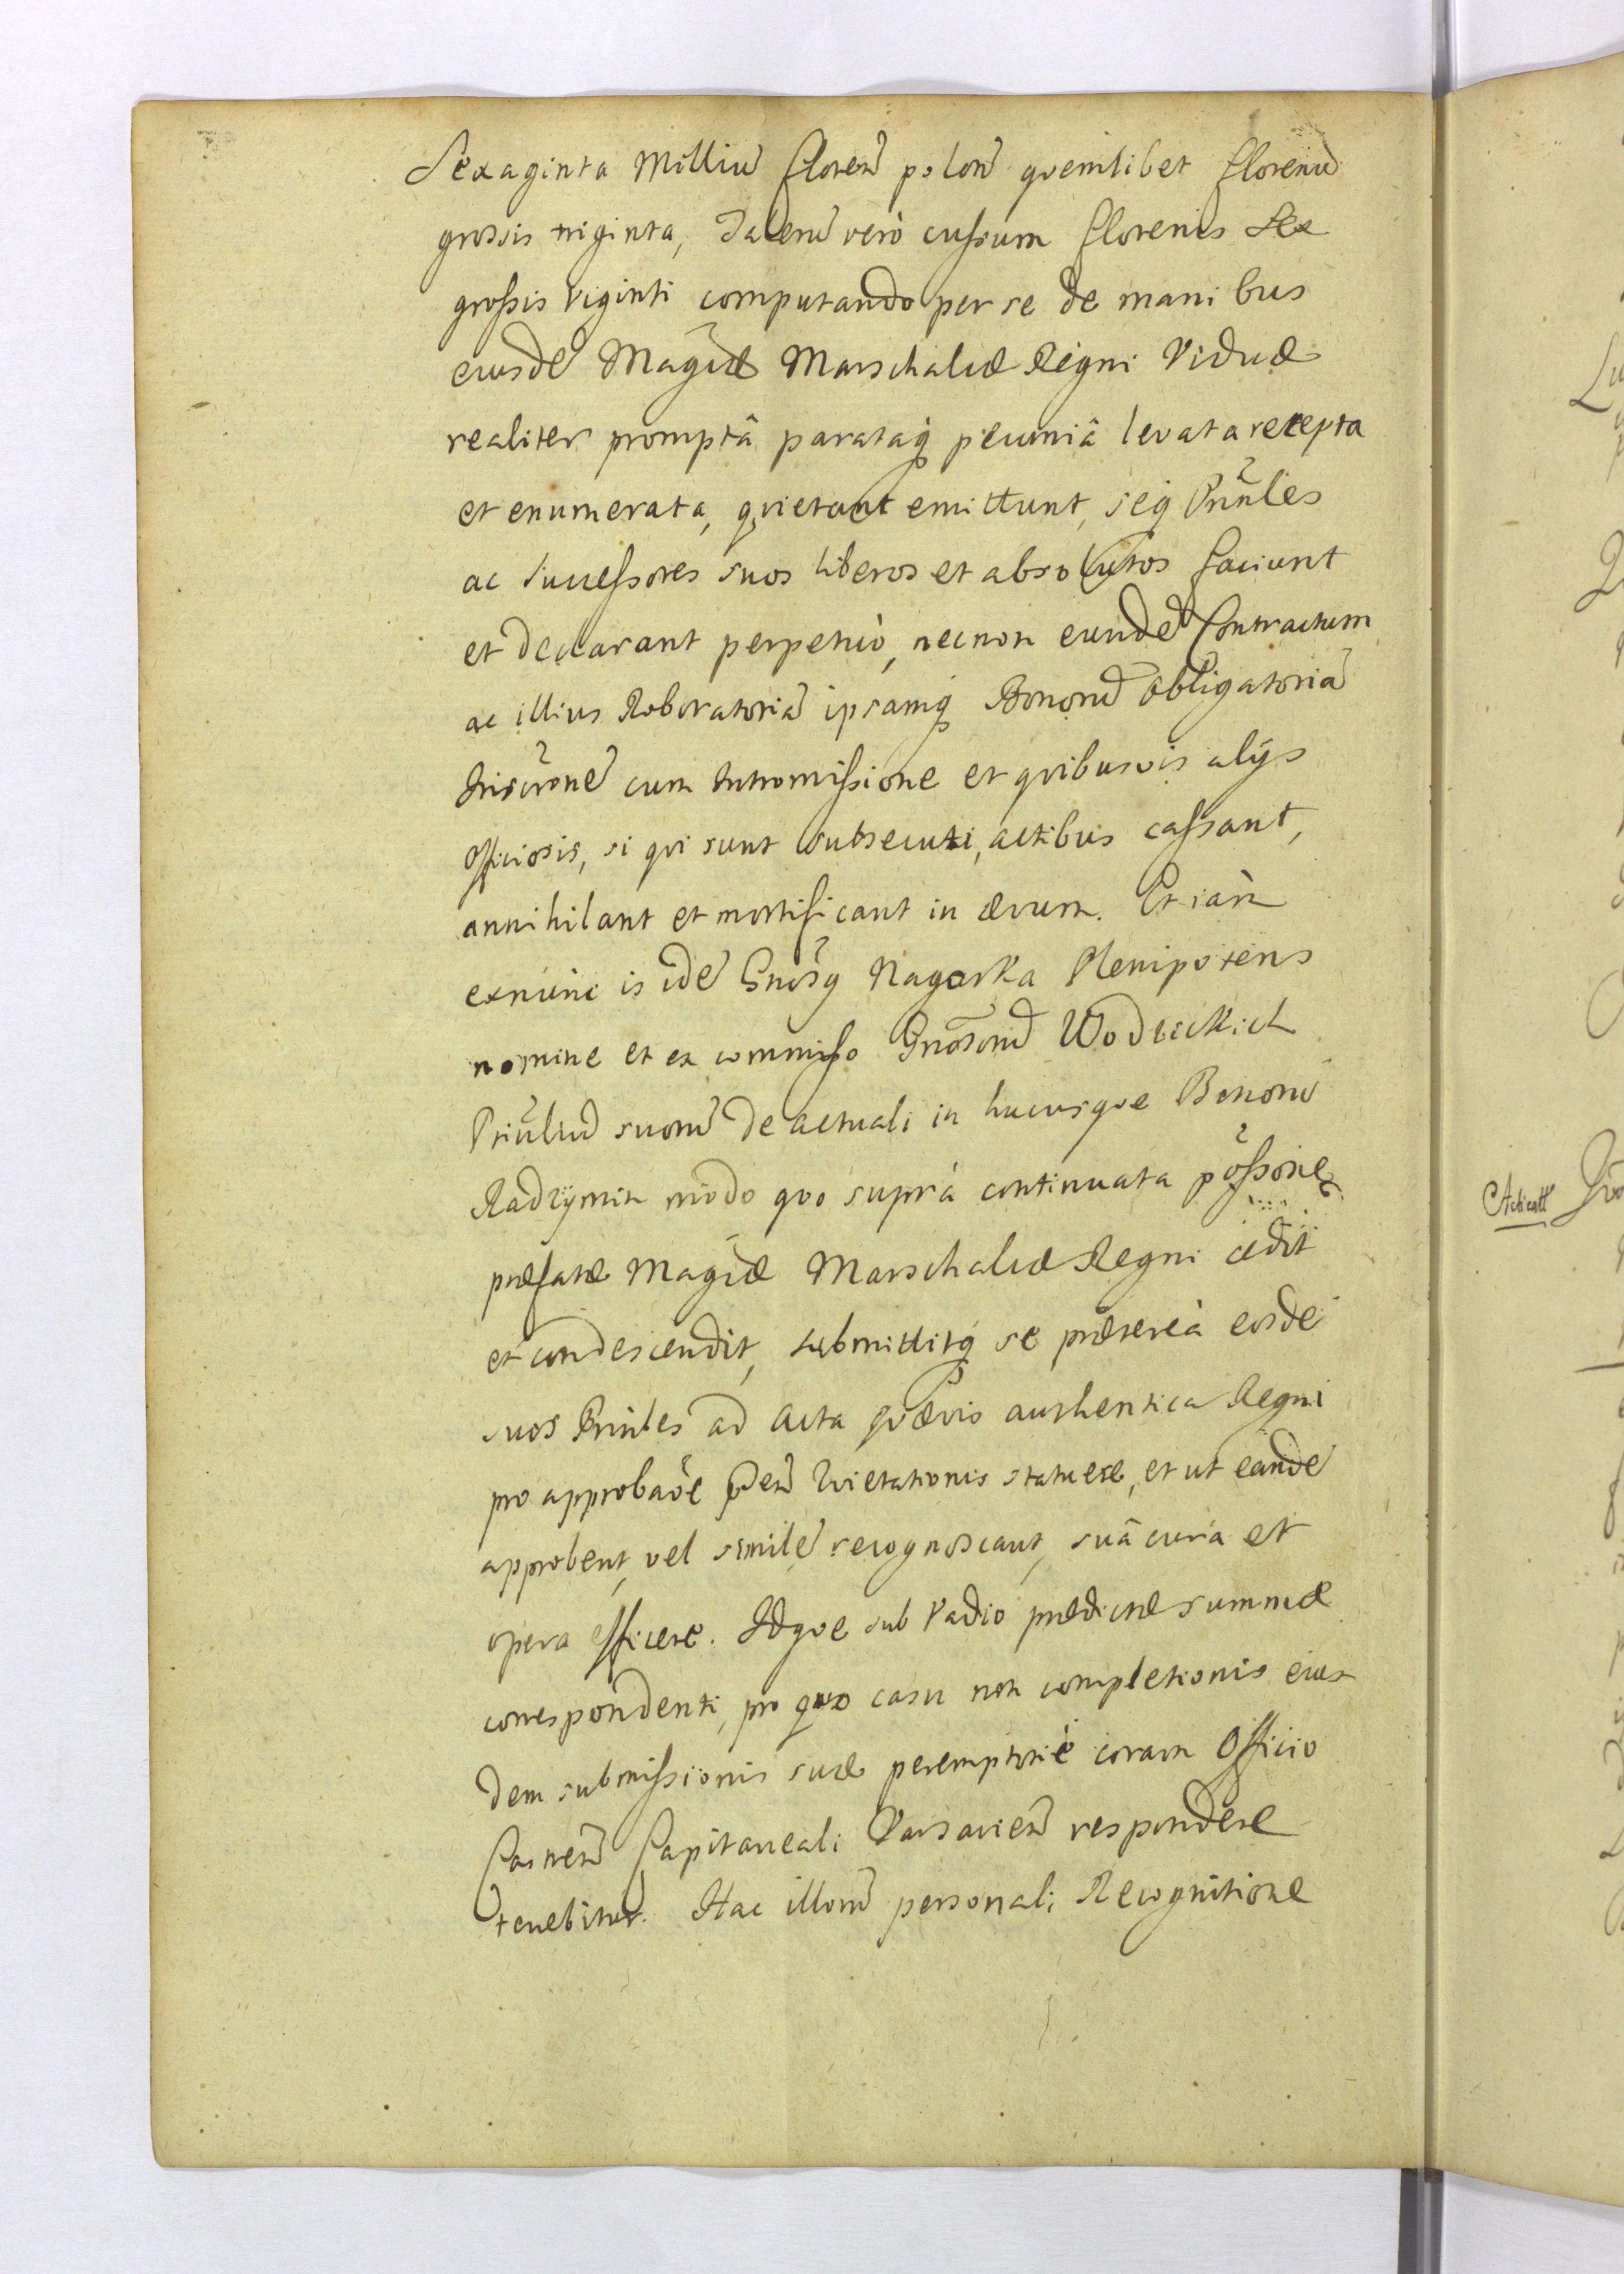 Sexaginta Milliū floreñ poloñ quemlibet florenū
grossis triginta, Talerū verò cussum florenis Sex
grossis viginti computando per se de manibus
eiusdē Mag̃cæ Marschalcæ Regni Viduæ
realiter promptâ parataq́ pecuniâ levata recepta
et enumerata, quietant emittunt, seq́ Prin̄les
ac Successores suos liberos et absolutos faciunt
et declarant perpetuò, necnon eundē Contractum
ac illius Roboratoriā ipsamq́ Bonorū obligatoriā
Inscr̃onē cum Intromissione et quibusvis alÿs
officiosis, si qui sunt subsecuti, actibus cassant,
annihilant et mortificant in ævum. Et iàm
exnunc is idē Gnõsg Nagorka Plenipotens
nomine et ex commisso Gnõsorū Wodzickich
Prin̄liū suorū de actuali in hucusque Bonorū
Radzÿmin modo quo suprà continuata põssone
præfatæ Mag̃cæ Marschalcæ Regni cedit
et condescendit, submittitq́ se prætereà eosdē
suos Prin̄les ad Acta quævis authentica Regni
pro approbaõe p̃ñ Quietationis statuere, et ut eandē
approbent, vel similē recognoscant, suâ curâ et
opera efficere. Idque sub Vadio prædictæ summæ
correspondenti, pro quo casu non completionis eius
dem submissionis suæ peremptoriè coram Officio
Castreñ Capitaneali Varsavieñ respondere
tenebitur. Hac illorū personali Recognitione
Acticatt